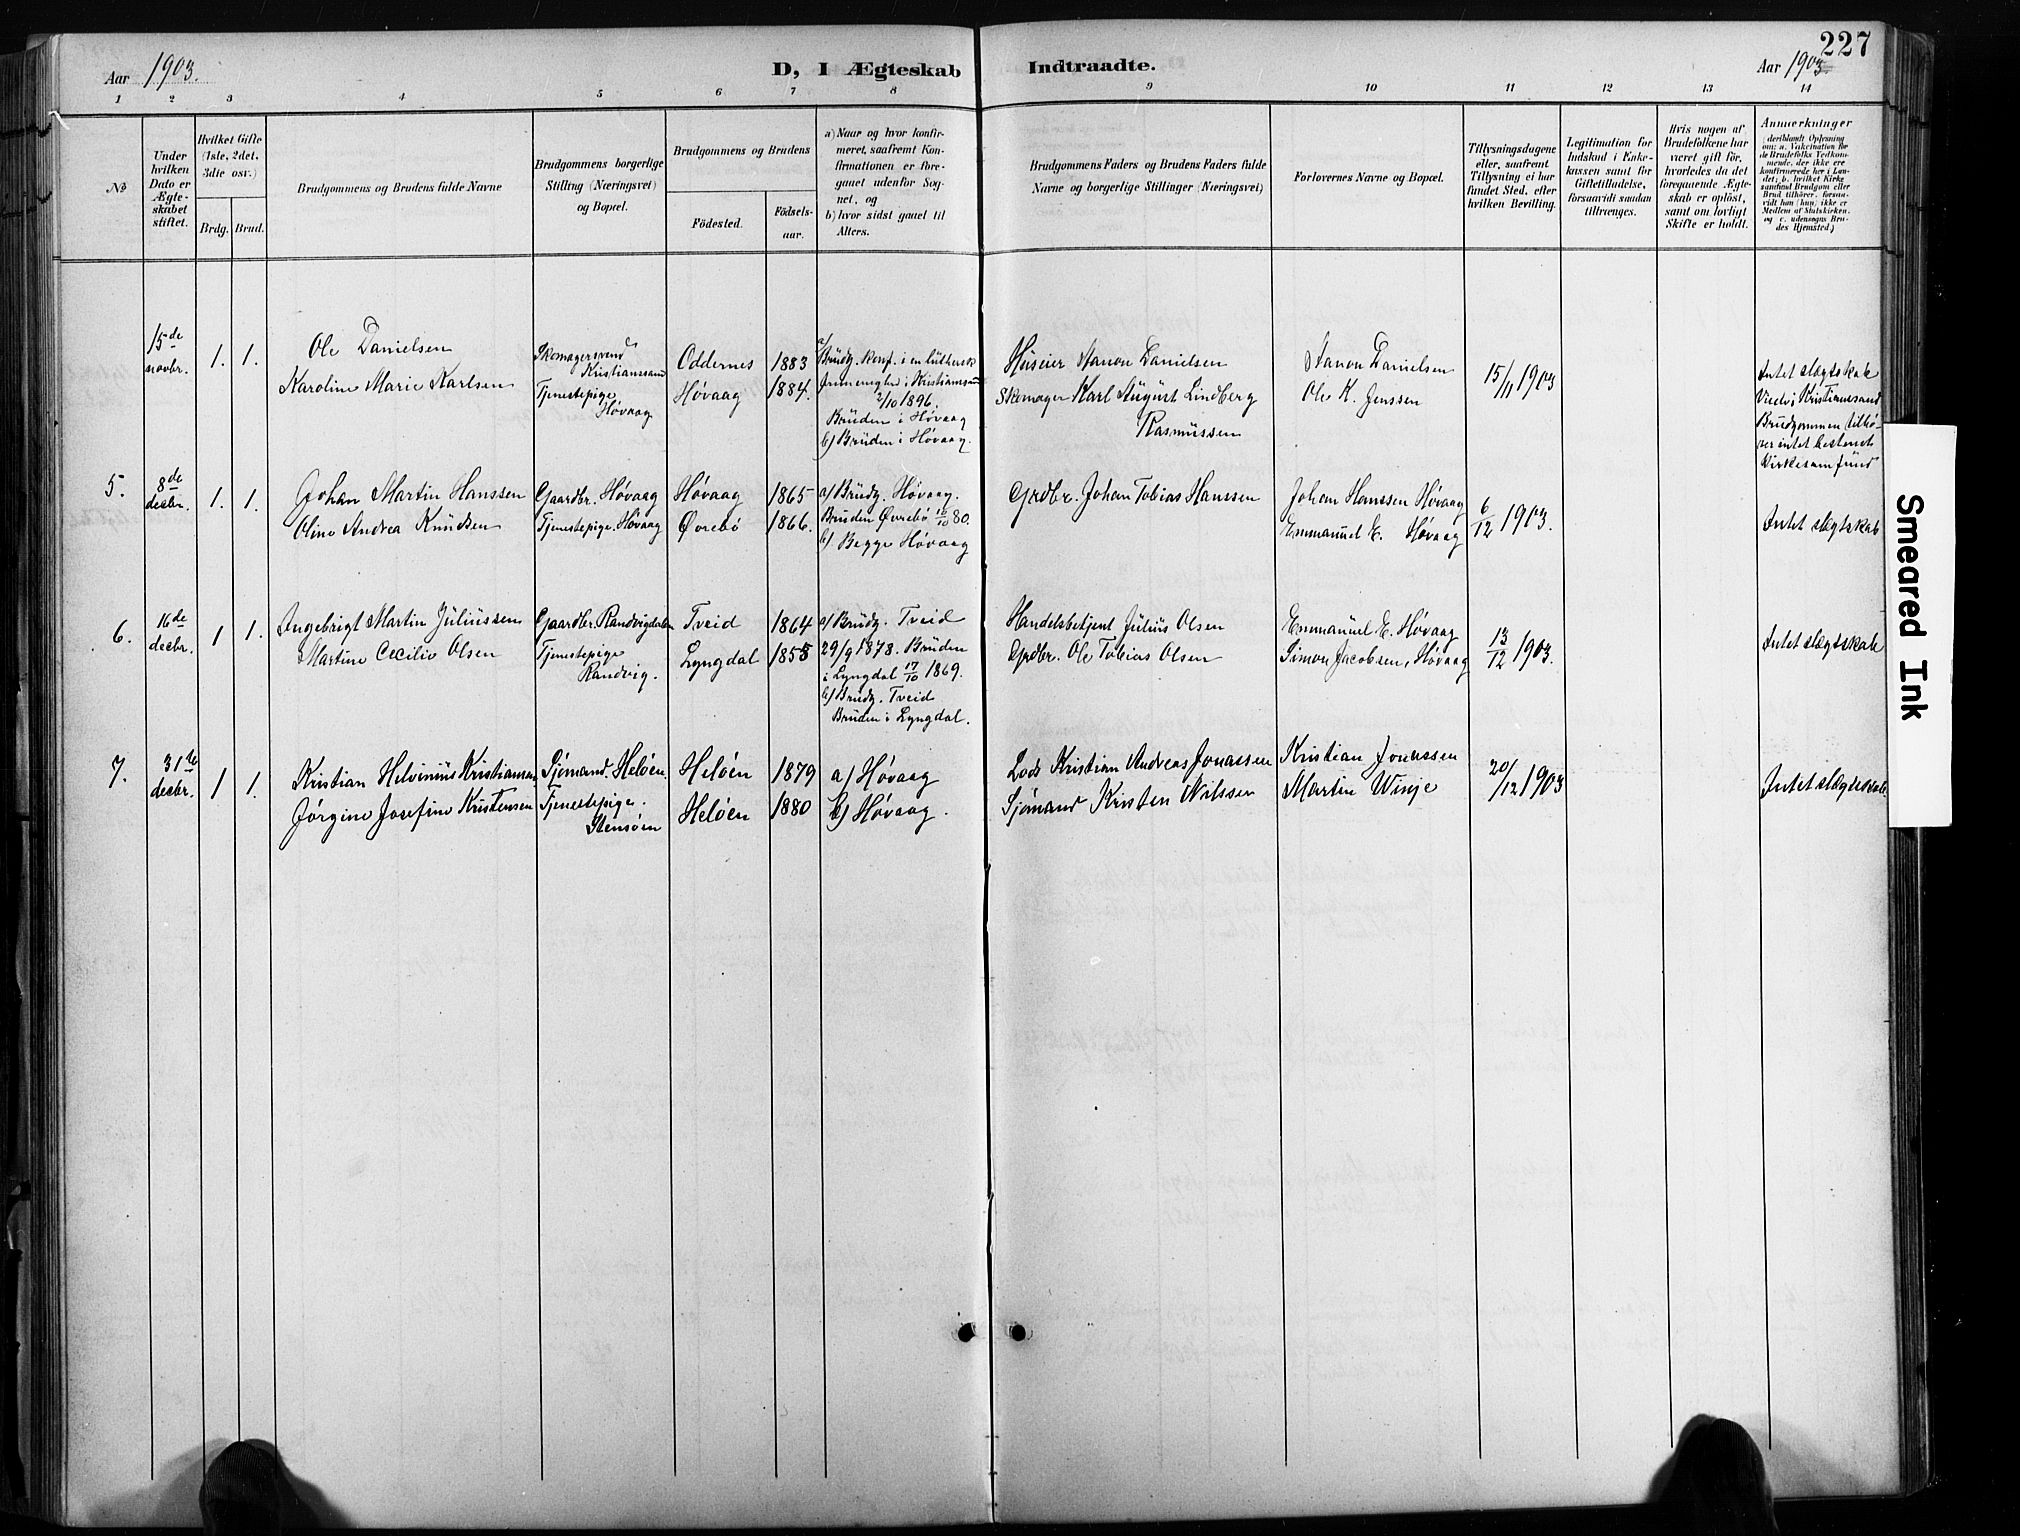 227
Aar 1903.
D, I Ægteskab Indtraadte.
Aar 1903.
1 2 3 4 5 6 7 8 9 10 11 12 13 14
No
Under hvilken Dato er Ægteskabet stiftet.
Hvilket Gifte (1ste, 2det, 3die osv.)
Brdg. Brud.
Brudgommens og Brudens fulde Navne
Brudgommens borgerlige Stilling (Næringsvei) og Bopæl.
Brudgommens og Brudens
Födested.
Födselsaar.
a) Naar og hvor konfirmeret, saafremt Konfirmationen er foregaaet udenfor Sognet, og
b) hvor sidst gaaet til Alters.
Brudgommens Faders og Brudens Faders fulde Navne og borgerlige Stillinger (Næringsvei)
Forlovernes Navne og Bopæl.
Tillysningsdagene eller, saafremt Tillysning ei har fundet Sted, efter hvilken Bevilling.
Legitimation for Indskud i Enkekassen samt for Giftetilladelse, forsaavidt saadan tiltrænges.
Hvis nogen af Brudefolkene har været gift før, hvorledes da det foregaaende Ægteskab er oplöst, samt om lovligt Skifte er holdt.
Anmerkninger (deriblandt Oplysning om: a. Vakcination for de Brudefolks Vedkommende, der ikke ere konfirmerede her i Landet; b. hvilket Kirkesamfund Brudgom eller Brud tilhörer, forsaavidt han (hun) ikke er Medlem af Statskirken, og c. udensogns Brudes Hjemsted.)
15de novbr. 1. 1.
Ole Danielsen
Karoline Marie Karlsen
Skomagersvend Kristianssand
Tjenestepige Høvaag
Oddernes 1883
Høvaag 1884.
a) Brudg. konf. i en luthersk
frimenighed i Kristianssand
2/10 1896.
Bruden i Høvaag
b) Bruden i Høvaag.
Huseier Danielsen
Skomager Karl August Lindberg
Rasmussen
Danielsen
Ole K. Jenssen
15/11 1903
Intet slægtskab
Viede i Kristianssand
Brudgommen tilhø-
rer intet bestemt
Kirkesamfund
5. 8de decbr. 1. 1.
Johan Martin Hanssen
Oline Andrea Knudsen
Gaardbr. Høvaag
Tjenestepige. Høvaag
Høvaag 1865
Øvrebø 1866.
a) Brudg. Høvaag.
Bruden Øvrebø 80.
b) Begge Høvaag
Grdbr. Johan Tobias Hanssen
Johan Hanssen Høvaag
Emmanuel E. Høvaag
6/12 1903.
Intet slægtskab
6. 16de decbr. 1 1.
Ingebrigt Martin Juliussen
Martine Cecilie Olsen
Gaardbr. Randvigdalen
Tjenestepige
Randvig.
Tveid 1864
Lyngdal 1855
a) Brudg. Tveid
29/9 1878. Bruden
i Lyngdal 17/10 1869.
b) Brudg. Tveid
Bruden i Lyngdal.
Handelsbetjent Julius Olsen
Grdbr. Ole Tobias Olsen
Emmanuel E. Høvaag
Simon Jacobsen, Høvaag
13/12 1903.
Intet slægtskab
7. 31te decbr. 1 1.
Kristian Helvinius Kristiansen
Jørgine Josefine Kristensen
Sjømand. Heløen.
Tjenestepige.
Stensøen
Heløen 1879
Heløen 1880
a) Høvaag
b) Høvaag.
Lods Kristian Andreas Jonassen
Sjømand Kristen Nilssen
Kristian Jonassen
Martin Winje
20/12 1903
Intet slægtskab.
Smeared Ink